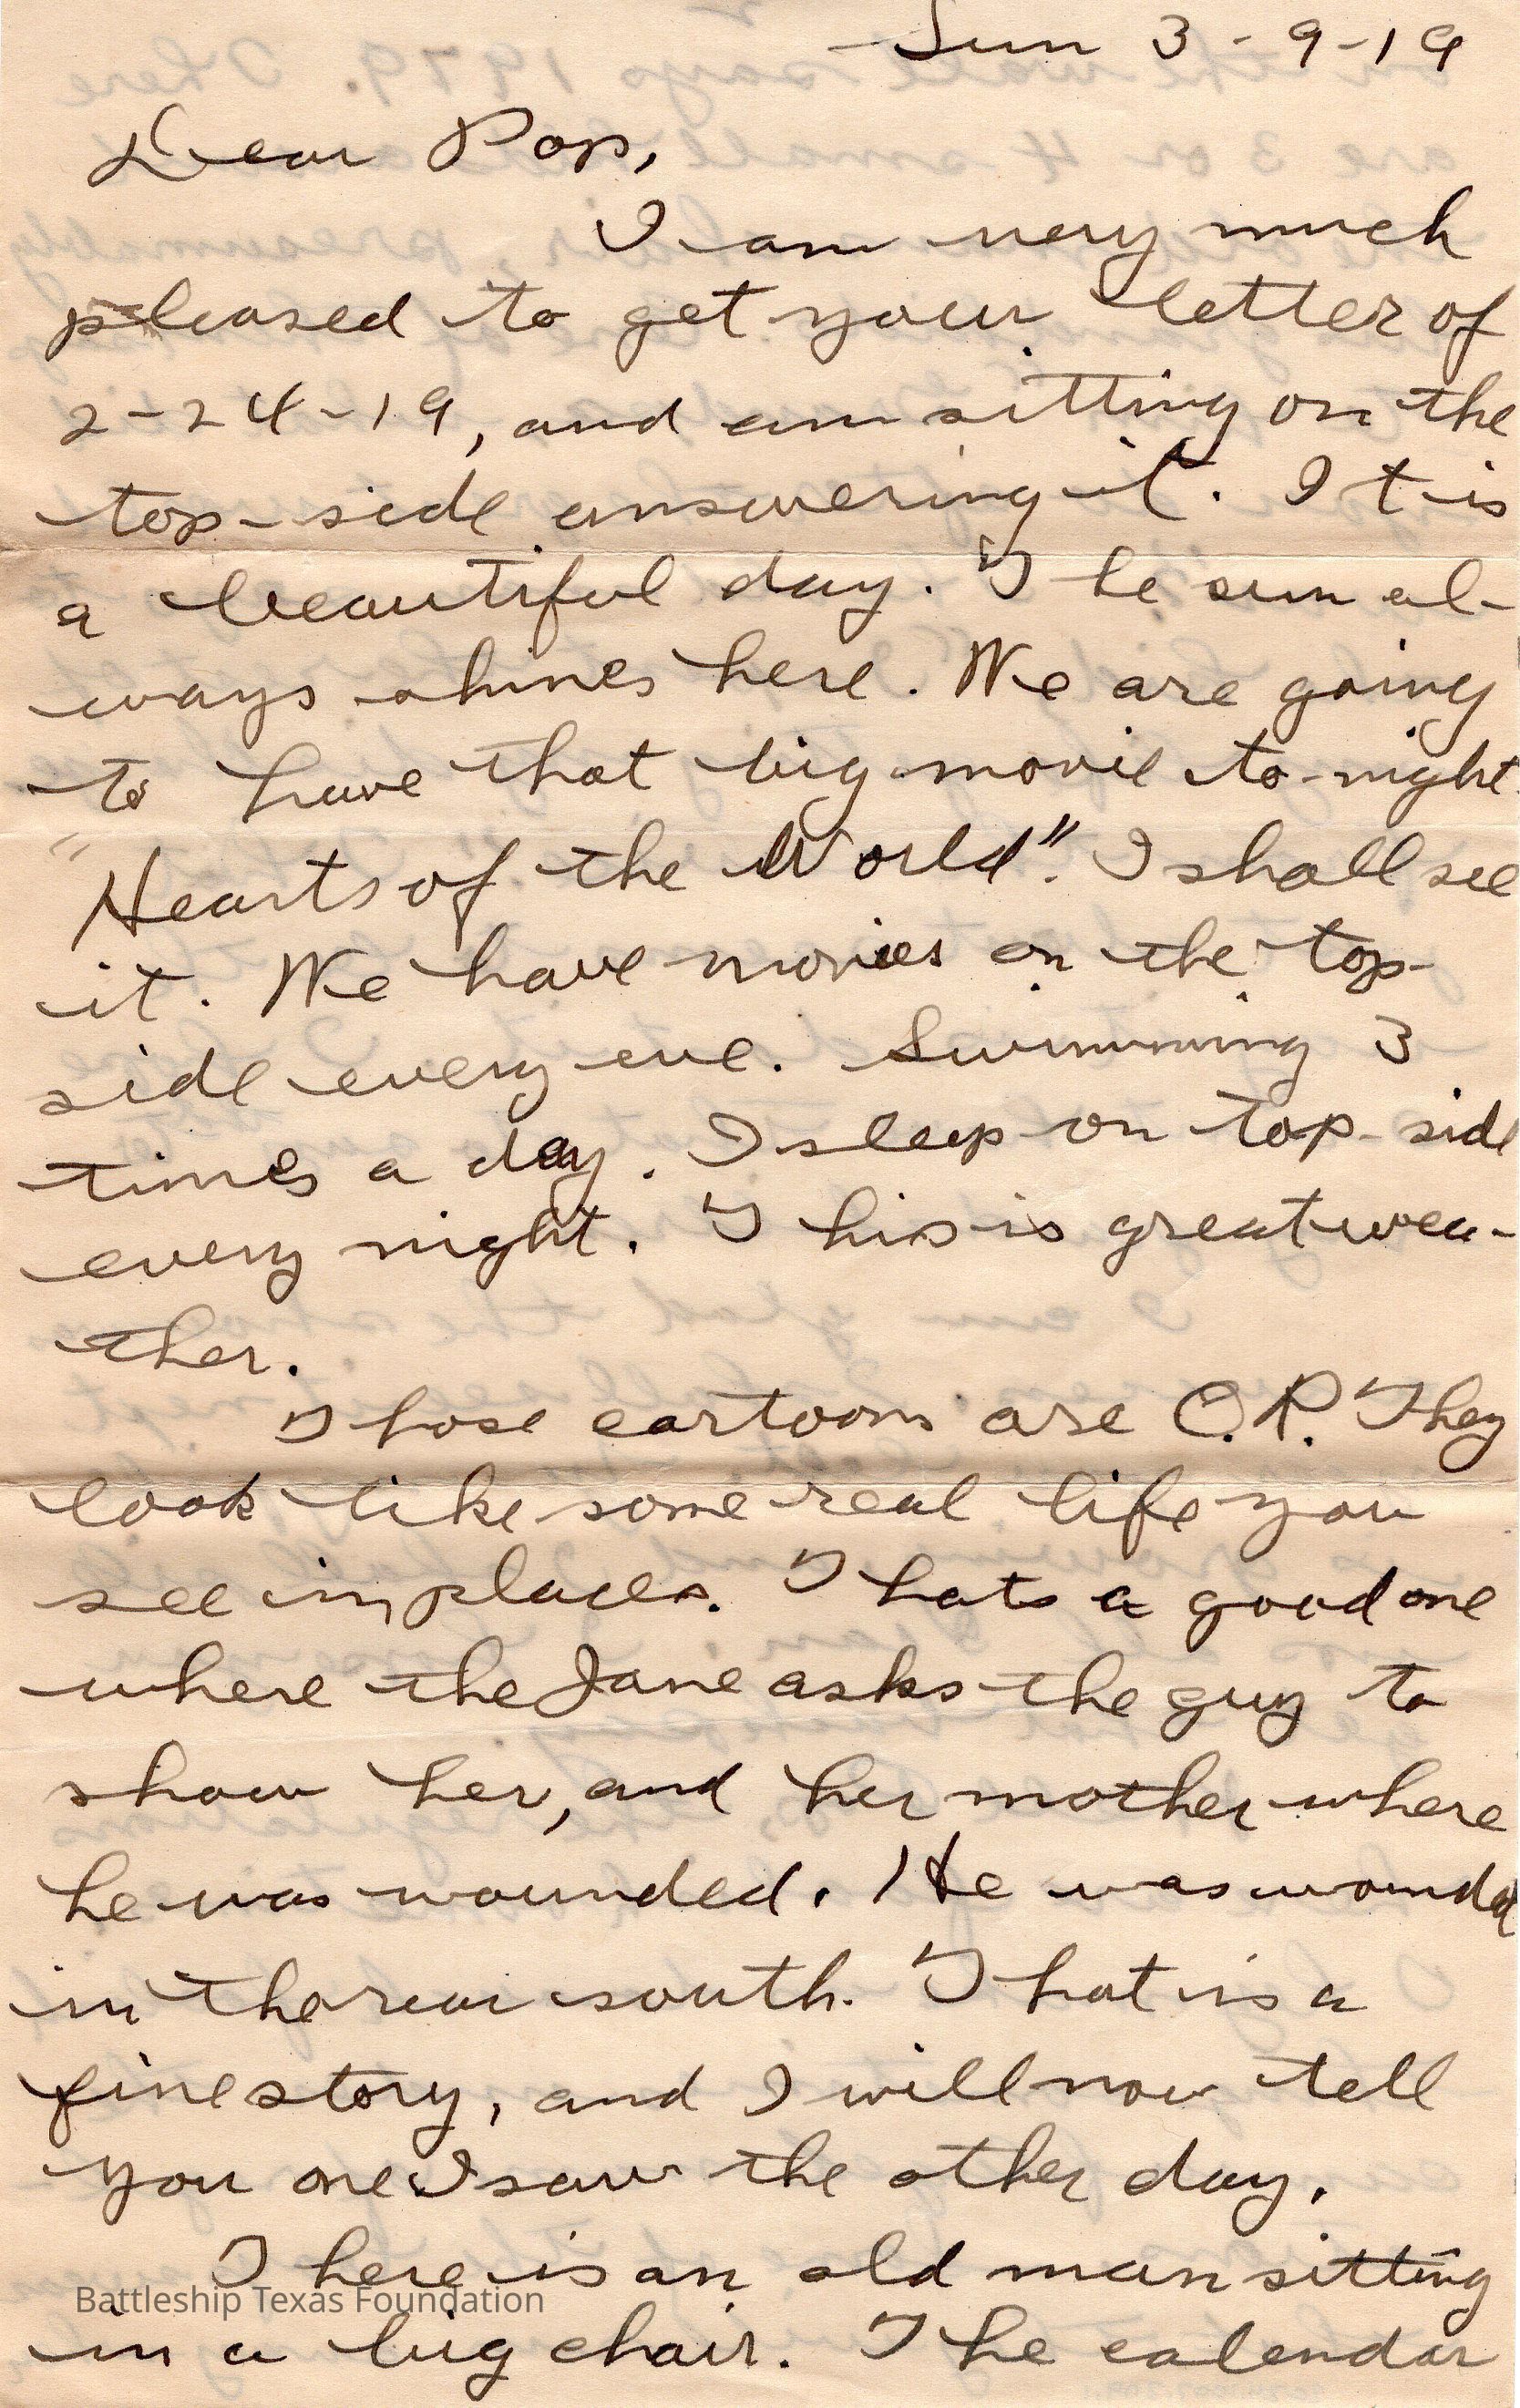 Sun 3-9-19
Dear Pop,
I am very much
pleased to get your letter of
2-24-19, and am sitting on the
top-side answering it. It is
a beautiful day. The sun al-
ways shines here. We are going
to have that big movie to-night.
"Hearts of the World". I shall see
it. We have movies on the top-
side every eve. Swimming 3
times a day. I sleep on top-side
every night. This is great wea-
ther.
Those cartoons are O.K. They
look like some real life you
see in places. Thats a good one
where the Jane asks the guy to
show her, and her mother where
he was wounded. He was wounded
in the rear south. That is a
fine story, and I will now tell
you one I saw the other day.
There is an old man sitting
Battleship Texas Foundation
in a big chair. The calendar